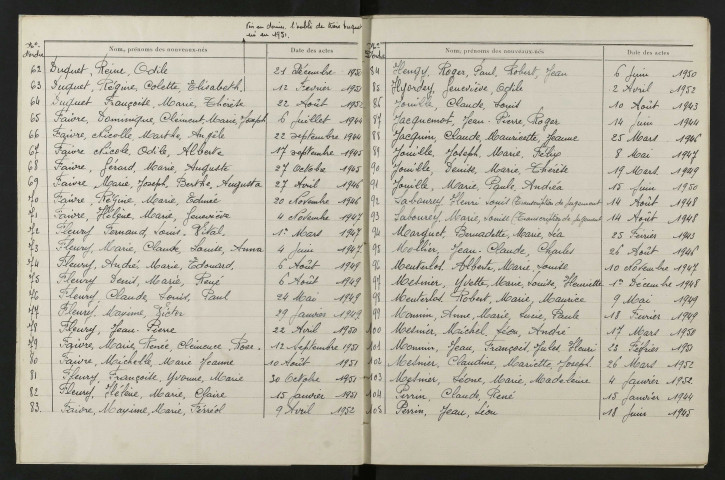 Fin en donne l'oubli de trois Duquet
né en 1951.
Nos d'ordre Nom, prénoms des nouveaux-nés Date des actes
62 Duquet, Reine, Odile 21 Décembre 1950
63 Duquet, Régine, Colette, Elisabeth. 12 Février 1951
64 Duquet Françoise, Marie, Thérèse 22 Août 1952
65 Faivre, Dominique, Clément, Marie, Joseph 6 juillet 1944
66 Faivre Nicolle Marthe Angèle 22 septembre 1944
67 Faivre Nicole, Odile, Alberte 17 septembre 1945
68 Faivre, Gérard, Marie, Auguste 27 Octobre 1945
69 Faivre Marie, Joseph, Berthe, Augusta 27 Avril 1946
70 Faivre, Régine, Marie, Edmée 20 Novembre 1946
71 Faivre, Hélène, Marie, Geneviève 4 Novembre 1947
72 Fleury Fernand, Louis, Vital. 1er Mars 1947
73 Fleury, Marie, Claude, Louise, Anna 4 juin 1947
74 Fleury, André, Marie, Edouard, 6 Août 1949
75 Fleury Denis, Marie, René 6 Août 1949
76 Fleury Claude, Louis, Paul 24 Mai 1949
77 Fleury, Maxime, 29 janvier 1949
78 Fleury, Jean-Pierre 22 Avril 1950
79 Faivre, Marie, Renée, Clémence, Rose. 12 Septembre 1951
80 Faivre, Michelle, Marie Jeanne 10 Août 1951
81 Fleury, Françoise, Yvonne, Marie 30 Octobre 1951
82 Fleury, Hélène, Marie, Claire 15 janvier 1951
83. Faivre, Maxime, Marie, Ferréol 9 Avril 1952
Nos d'ordre Nom, prénoms des nouveaux-nés Date des actes
84 Hengy, Roger, Paul, Robert, Jean 6 juin 1950
85 Geneviève, Odile 2 Avril 1952
86 Jouille, Claude, Louis 10 Août 1943
87 Jacquemot, Jean-Pierre, Roger 14 juin 1944
88 Jacquin, Claude, Mauricette, Jeanne 25 Mars 1946
89 Jouille, Joseph, Marie, Félix 8 Mai 1947
90 Jouille Denise, Marie, Thérèse 19 Mars 1949
91 Jouille, Marie, Paule, Andréa 15 juin 1950
92 Labourey Henri Louis (Transcription de jugement 14 Août 1948
93 Labourey, Marie, Louise (Transcription de jugement 14 Août 1948
94 Marquet, Bernadette, Marie, Léa 25 Février 1943
95 Mollier, Jean-Claude, Charles 26 Août 1946
96 Alberte, Marie, Louise 10 Novembre 1947
97 Mesnier, Yvette, Marie, Louise, Henriette 1er Décembre 1948
98 Robert, Marie, Maurice 9 Mai 1949
99 Monnin, Anne, Marie, Lucie, Paule 18 Février 1949
100 Mesnier Michel, Léon, André 17 Mars 1950
101 Monnin, Jean, François, Jules, Henri 23 Février 1951
102 Mesnier, Claudine, Mariette, Joseph 26 Mars 1952
103 Mesnier, Léone, Marie, Madeleine 4 janvier 1952.
104 Perrin, Claude, René 15 janvier 1944
105 Perrin, Jean, Léon 18 juin 1945